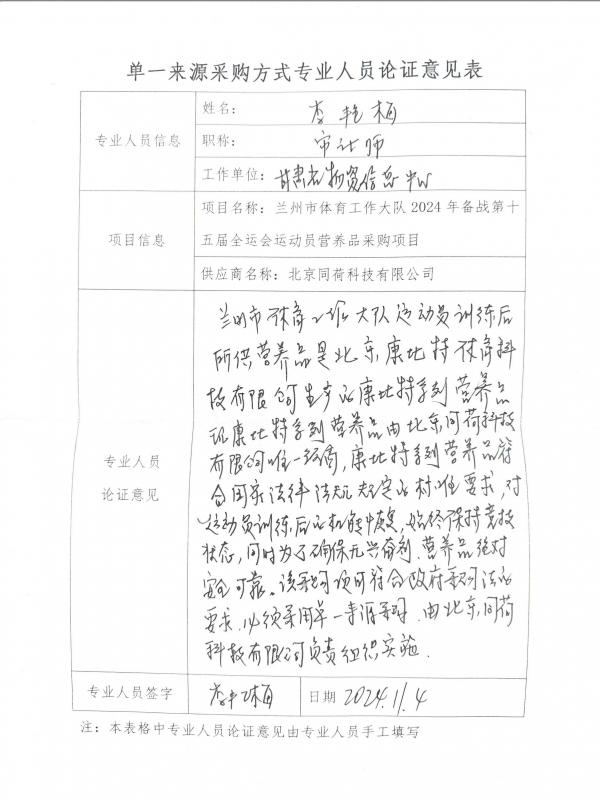 单一来源采购方式专业人员论证意见表
专业人员信息
姓名：李艳梅
职称：审计师
工作单位：甘肃省物资信息中心
项目信息
项目名称：兰州市体育工作大队2024年备战第十
五届全运会运动员营养品采购项目
供应商名称：北京同荷科技有限公司
专业人员
论证意见
兰州市体育工作大队运动员训练后
所供营养品是北京康比特体育科
技有限公司生产的康比特系列营养品
现康比特系列营养品由北京同荷科技
有限公司唯一经销，康比特系列营养品符
合国家法律法规规定的标准要求，对
运动员训练后的机能恢复，始终保持竞技
状态，同时为了确保无兴奋剂、营养品绝对
安全可靠。该采购项目符合政府采购法的
要求，必须采用单一来源采购，由北京同荷
科技有限公司负责组织实施．
专业人员签字
李艳梅
日期 2024.11.4
注：本表格中专业人员论证意见由专业人员手工填写